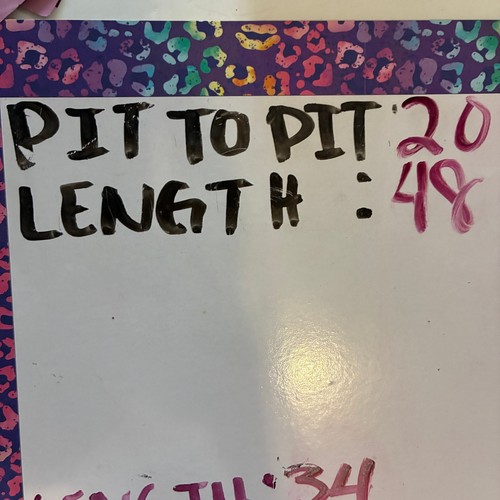 PIT TO PIT: 20
LENGTH : 48
LENGTH: 34